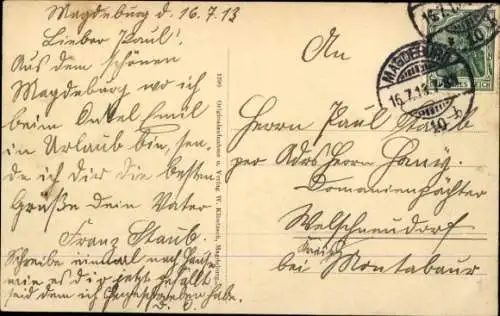 Magdeburg d. 16.7.13
Lieber Paul!
Aus dem schönen
Magdeburg wo ich
beim Onkel Emil
in Urlaub bin, sen,
de ich dir die besten
Grüße dein Vater
Franz Staub.
Schreibe einmal nach Hause
wie es dir jetzt gefällt
seid dem ich geschrieben habe.
D. O.
1390 Originalaufnahme u. Verlag W. Klautzsch, Magdeburg
An
Herrn Paul Staub
per Adrs Herrn
Domanienpächter
Welschneudorf
Kreis
bei Montabaur
MAGDEBURG
16.7.13
10